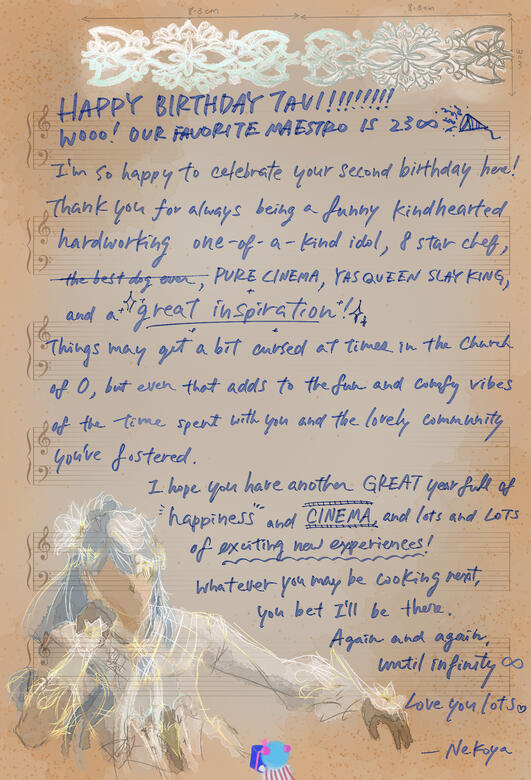 8.3cm 8.3cm
3cm
HAPPY BIRTHDAY TAVI!!!!!!!!!
WOOO! OUR FAVORITE MAESTRO IS 23∞
I'm so happy to celebrate your second birthday here!
Thank you for always being a funny kindhearted
hardworking one-of-a-kind idol, 8 star chef,
the best dog ever, PURE CINEMA, YAS QUEEN SLAY KING,
and a great inspiration!
Things may get a bit cursed at times in the Church
of O, but even that adds to the fun and comfy vibes
of the time spent with you and the lovely community
you've fostered.
I hope you have another GREAT year full of
"happiness" and CINEMA, and lots and LOTS
of exciting new experiences!
Whatever you may be cooking next,
you bet I'll be there.
Again and again,
until infinity ∞
Love you lots♡
— Nekoya